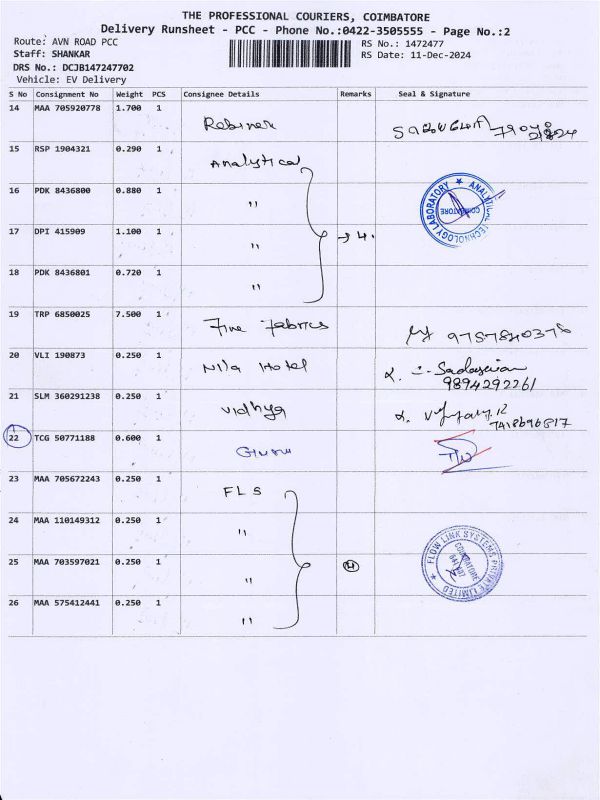 THE PROFESSIONAL COURIERS, COIMBATORE
Delivery Runsheet - PCC - Phone No.:0422-3505555 - Page No.:2
Route: AVN ROAD PCC
RS No.: 1472477
Staff: SHANKAR
RS Date: 11-Dec-2024
DRS No.: DCJB147247702
Vehicle: EV Delivery
S No Consignment No Weight PCS Consignee Details Remarks Seal & Signature
14 MAA 705920778 1.700 1
15 RSP 1904321 0.290 1 Analytical
16 PDK 8436800 0.880 1 "
ANALYTICAL TECHNOLOGY LABORATORY
COIMBATORE
17 DPI 415909 1.100 1 " → 4.
18 PDK 8436801 0.720 1 "
19 TRP 6850025 7.500 1 Fine Fabrics 9787840376
20 VLI 190873 0.250 1 Nila Hotel
9894292261
21 SLM 360291238 0.250 1 Vidhya
7418696817
22 TCG 50771188 0.600 1 Guru
23 MAA 705672243 0.250 1 FLS
24 MAA 110149312 0.250 1 "
25 MAA 703597021 0.250 1 " 4
FLOW LINK SYSTEMS PRIVATE LIMITED
COIMBATORE
26 MAA 575412441 0.250 1 "